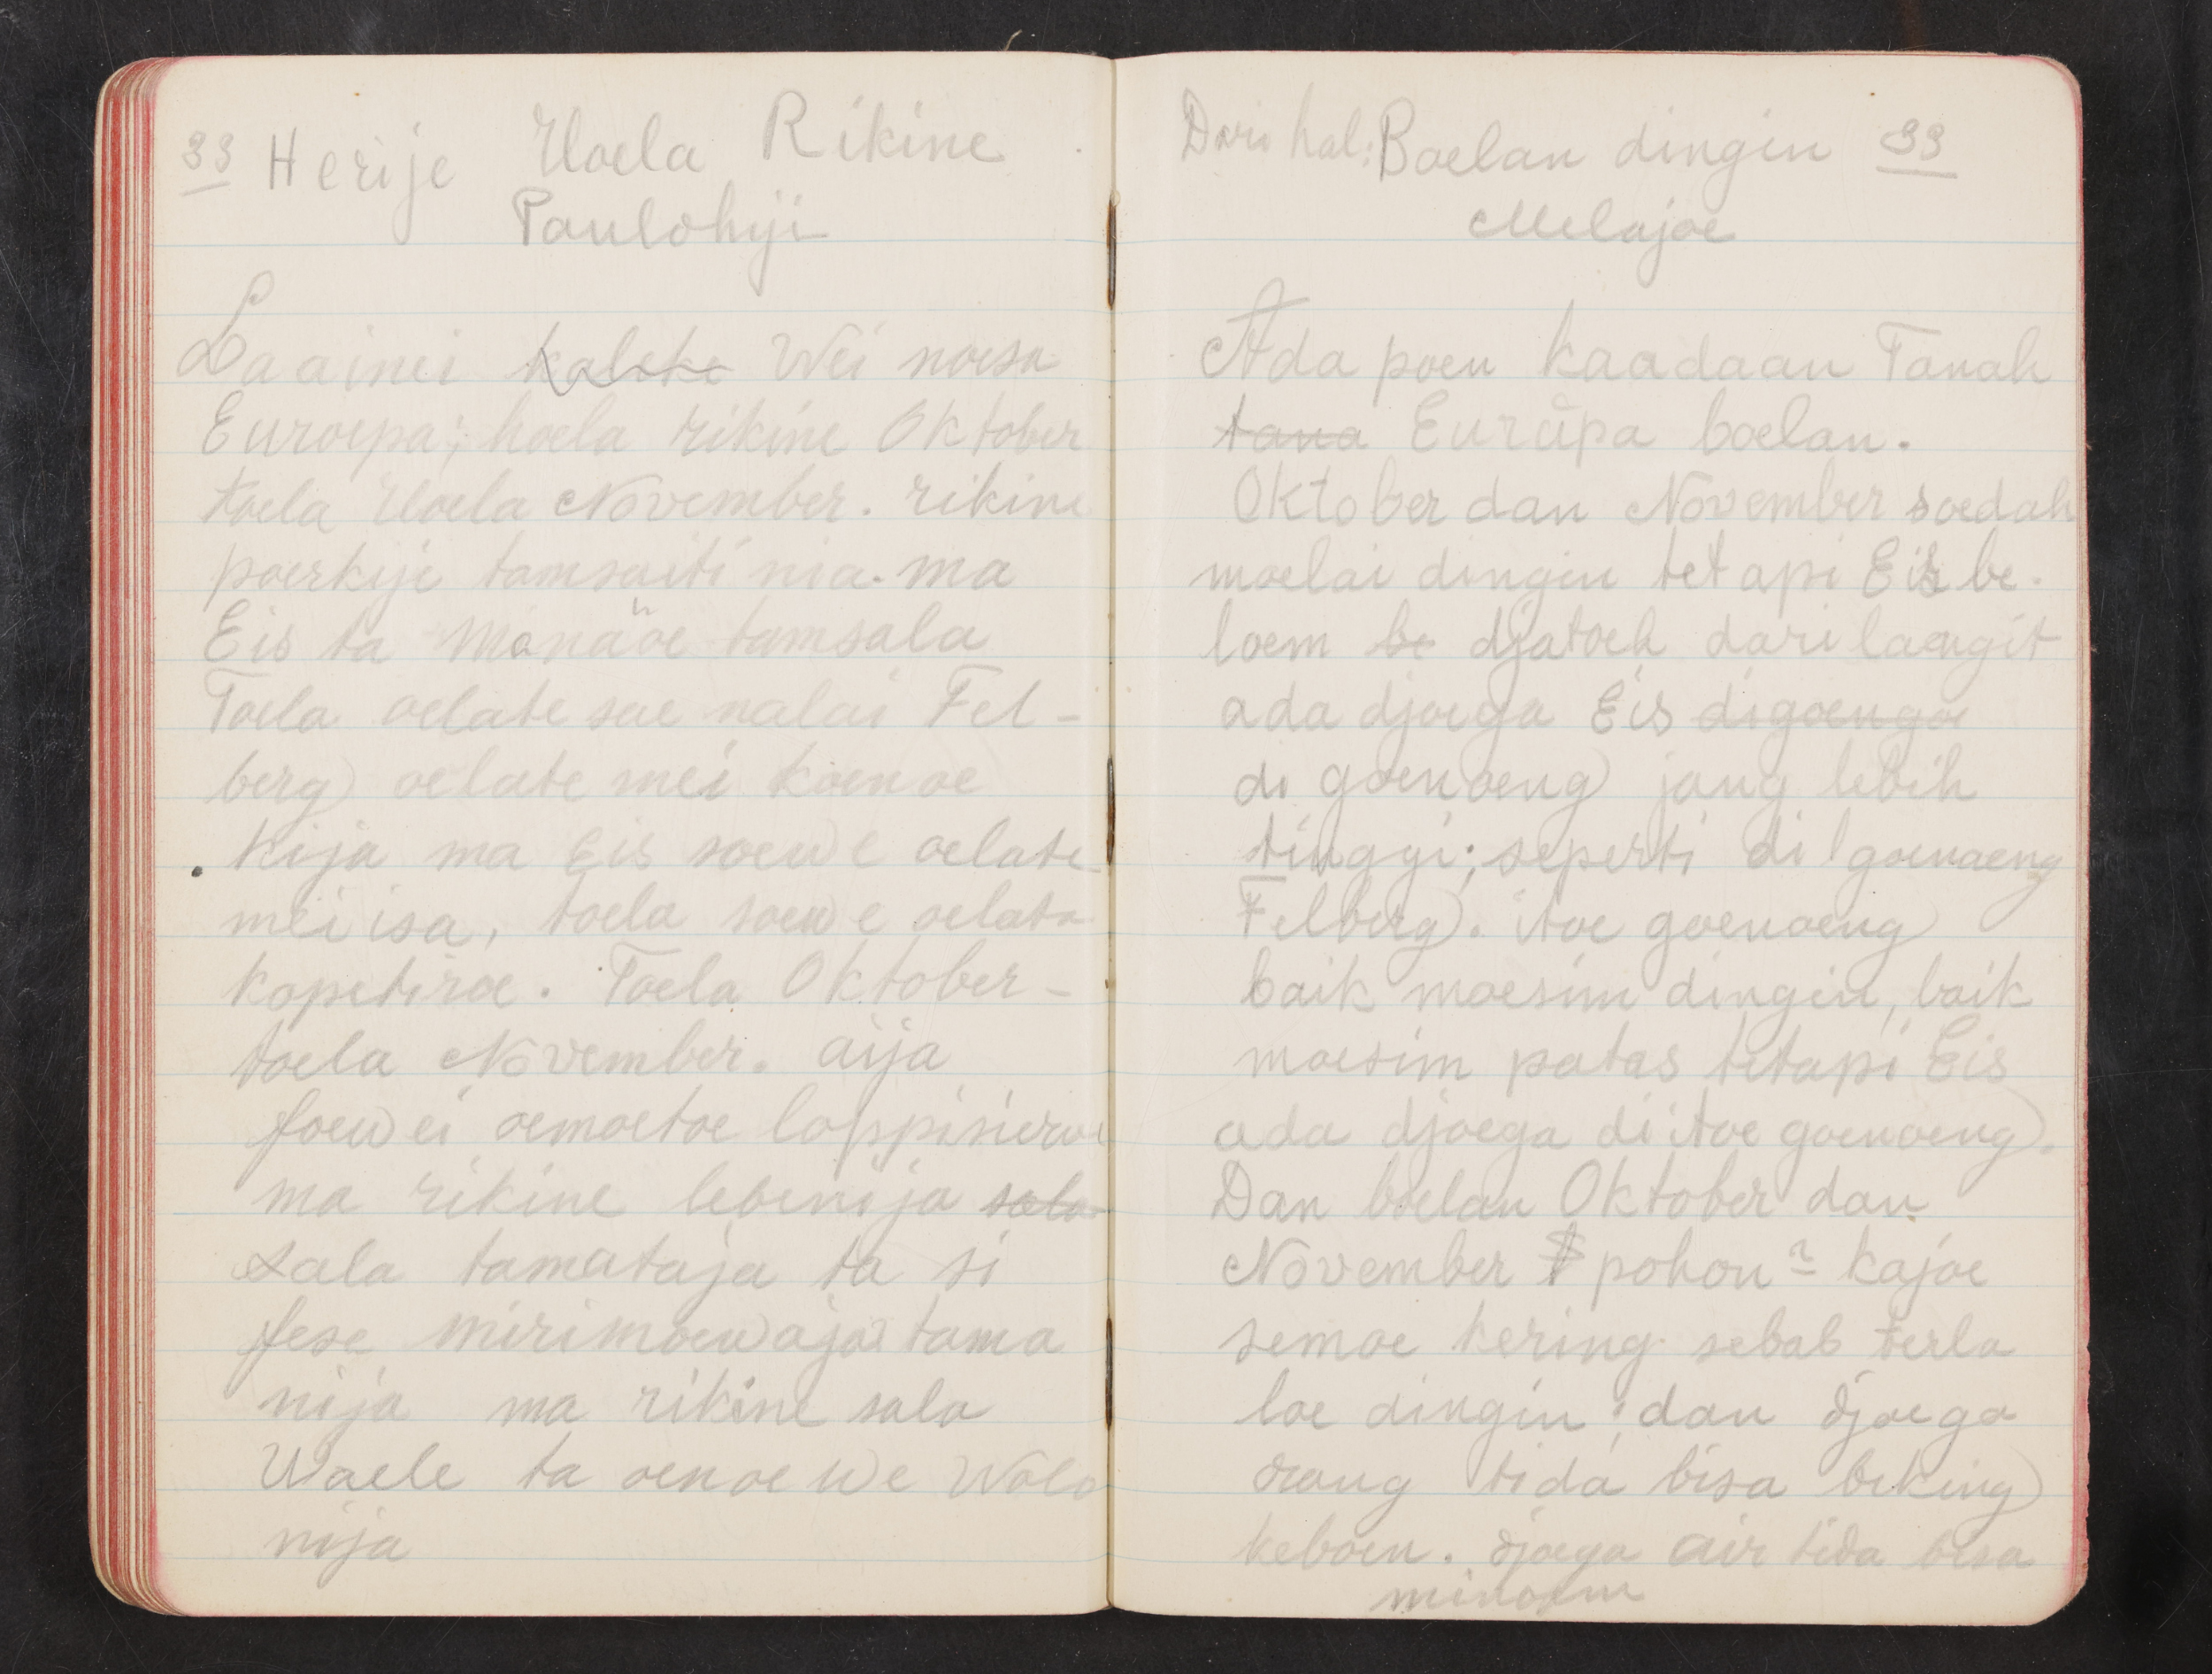 33 Herije Hoela Rikine
Paulohiji
Laainei kaleke Wei noesa
Euroepa; hoela rikine Oktober
toela Hoela November. rikine
poerkije tamsaiti nia. ma
Eis ta Manäoe tamsala
Toela oelate sae nalai Fel-
berg oelate mei koenoe
kija ma Eis soewe oelate
mei isa, toela soewe oelate
kopetiroe. Toela Oktober-
toela November. aija
foewei oemoetoe loppisieroe
ma rikine lebenija sala
sala tamataja ta si
fese mirimoewaja tama
nija ma rikine sala
Waele ta oenoe we Wola
nija
Dari hal: Boelan dingin 33
Melajoe
Ada poen kaadaan Tanah
tana Euröpa boelan.
Oktober dan November soedah
moelai dingin tetapi Eis be-
loem be djatoeh dari laengit
ada djoega Eis digoenga
di goenoeng jang lebih
tinggi; seperti di goenoeng
Felberg. itoe goenoeng
baik moesim dingin, baik
moesim patas tetapi Eis
ada djoega di itoe goenoeng.
Dan boelan Oktober dan
November pohon 2 kajoe
semoe kering sebab terla
loe dingin; dan djoega
orang tida bisa beking
keboen. djoega air tida bisa
minoem